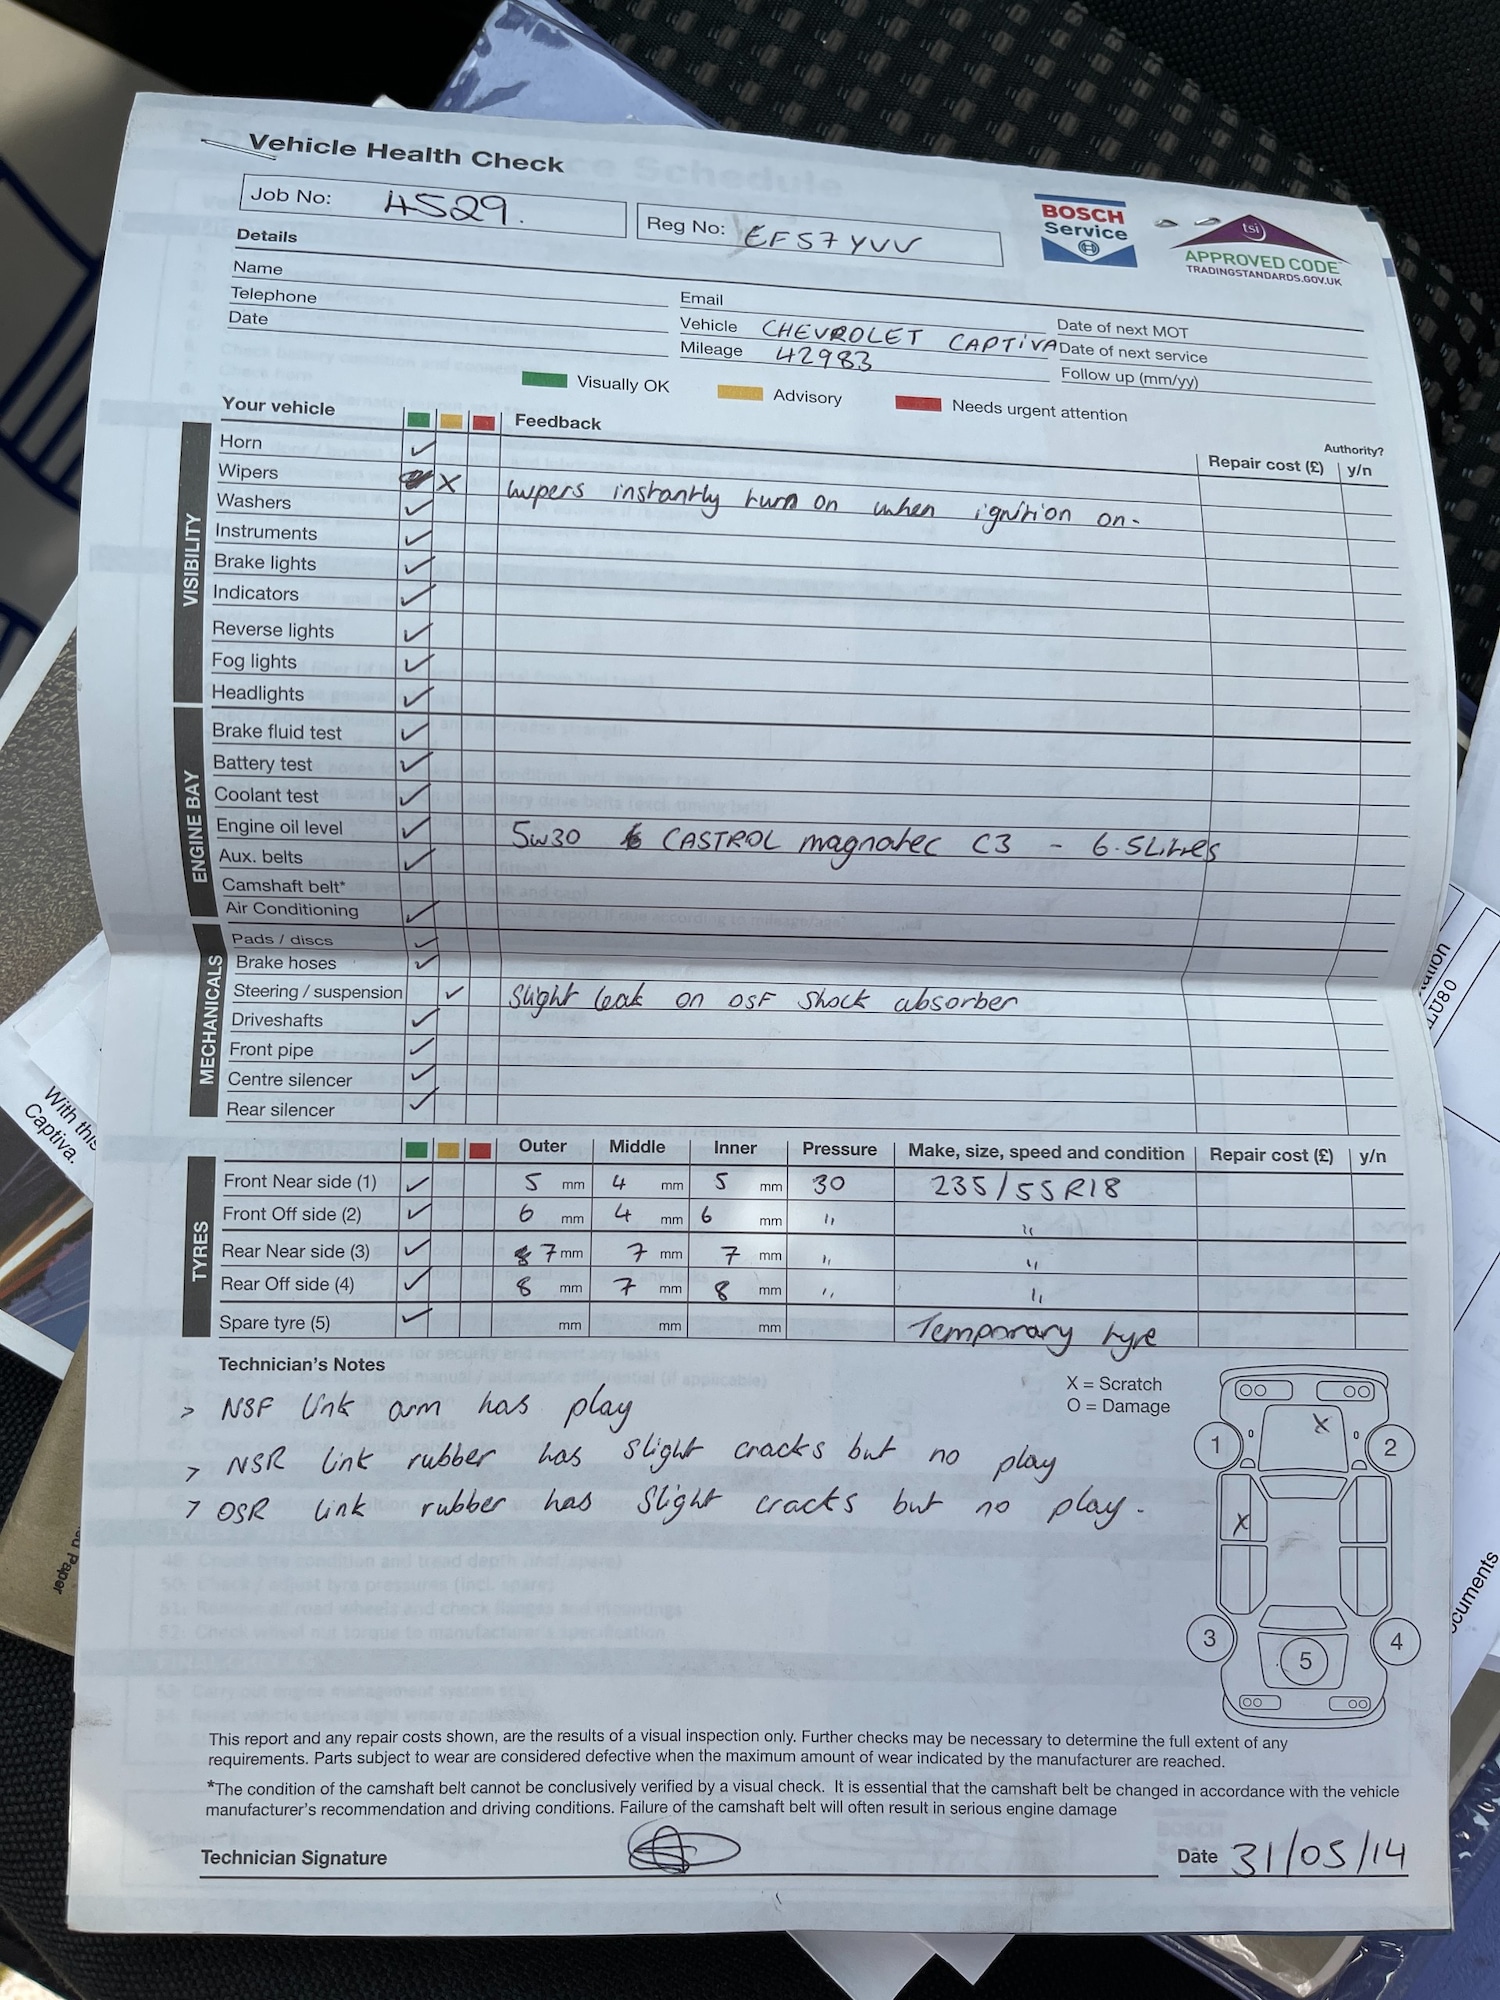 Vehicle Health Check
Job No: 4529.
Reg No: EF57 YVV
BOSCH
Service
tsi
APPROVED CODE
TRADINGSTANDARDS.GOV.UK
Details
Name
Telephone
Date
Email
Vehicle CHEVROLET CAPTIVA
Mileage 42983
Date of next MOT
Date of next service
Follow up (mm/yy)
Visually OK Advisory Needs urgent attention
Your vehicle Feedback Repair cost (£) Authority? y/n
VISIBILITY
Horn ✓
Wipers X wipers instantly turn on when ignition on.
Washers ✓
Instruments ✓
Brake lights ✓
Indicators ✓
Reverse lights ✓
Fog lights ✓
Headlights ✓
ENGINE BAY
Brake fluid test ✓
Battery test ✓
Coolant test ✓
Engine oil level ✓ 5w30 CASTROL magnatec C3 - 6.5Litres
Aux. belts ✓
Camshaft belt*
Air Conditioning ✓
MECHANICALS
Pads / discs ✓
Brake hoses ✓
Steering / suspension ✓ Slight leak on OSF shock absorber
Driveshafts ✓
Front pipe ✓
Centre silencer ✓
Rear silencer ✓
TYRES
Outer Middle Inner Pressure Make, size, speed and condition Repair cost (£) y/n
Front Near side (1) ✓ 5 mm 4 mm 5 mm 30 235/55R18
Front Off side (2) ✓ 6 mm 4 mm 6 mm " "
Rear Near side (3) ✓ 7 mm 7 mm 7 mm " "
Rear Off side (4) ✓ 8 mm 7 mm 8 mm " "
Spare tyre (5) ✓ mm mm mm Temporary tyre
Technician's Notes
> NSF link arm has play
> NSR link rubber has slight cracks but no play
> OSR link rubber has slight cracks but no play.
X = Scratch
O = Damage
X
1 2
X
3 4
5
This report and any repair costs shown, are the results of a visual inspection only. Further checks may be necessary to determine the full extent of any
requirements. Parts subject to wear are considered defective when the maximum amount of wear indicated by the manufacturer are reached.
*The condition of the camshaft belt cannot be conclusively verified by a visual check. It is essential that the camshaft belt be changed in accordance with the vehicle
manufacturer's recommendation and driving conditions. Failure of the camshaft belt will often result in serious engine damage
Technician Signature
Date 31/05/14
With this
Captiva.
Paper
LU80